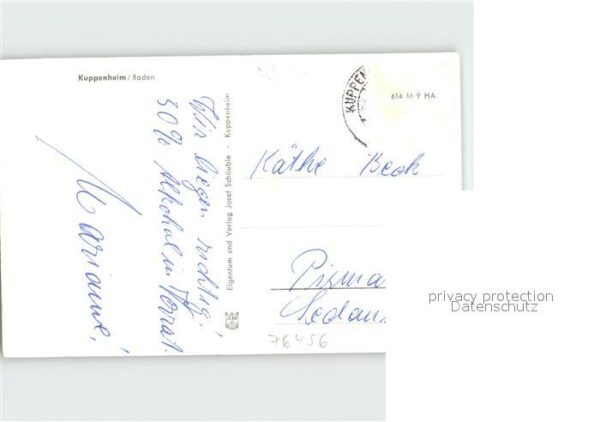 Kuppenheim / Baden
Wir liegen richtig!
30% Alkohol im Vorrat.
Marianne!
Eigentum und Verlag Josef Schäuble · Kuppenheim
KUPPEN
614 M 9 HA
Käthe Beck
Pirma
Sedan
76456
privacy protection
Datenschutz